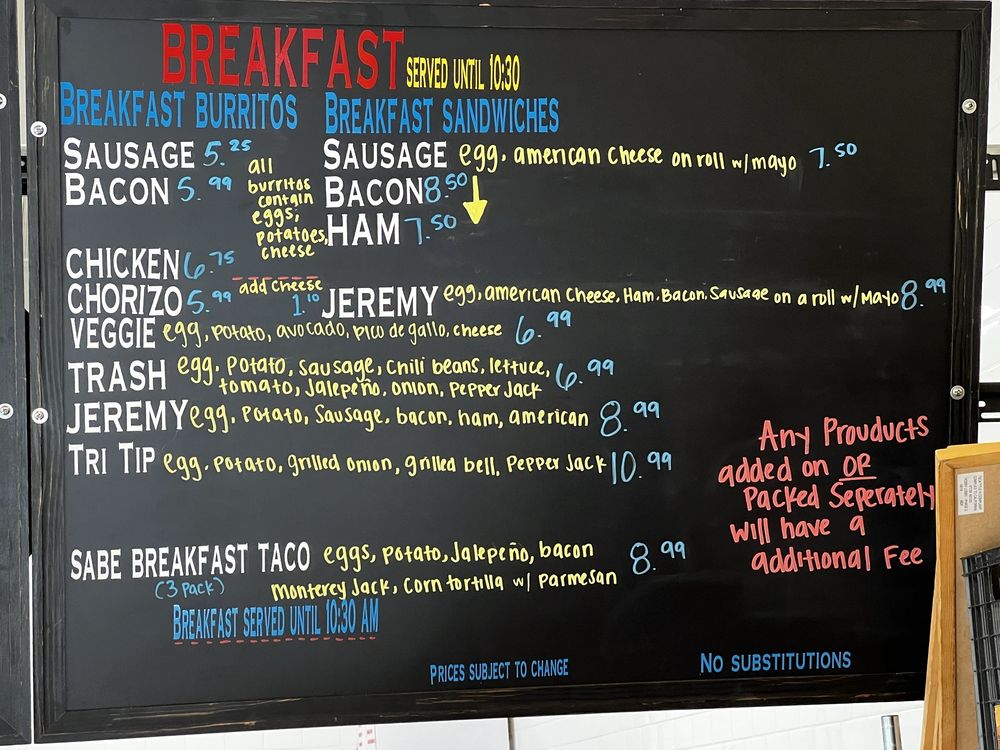 BREAKFAST SERVED UNTIL 10:30
BREAKFAST BURRITOS
SAUSAGE 5.25
BACON 5.99
all
burritos
contain
eggs,
potatoes,
cheese
CHICKEN 6.75
add cheese
1.10
CHORIZO 5.99
BREAKFAST SANDWICHES
SAUSAGE egg, american cheese on roll w/mayo 7.50
BACON 8.50
HAM 7.50
JEREMY egg, american cheese, Ham, Bacon, Sausage on a roll w/Mayo 8.99
VEGGIE egg, potato, avocado, pico de gallo, cheese 6.99
TRASH egg, potato, sausage, chili beans, lettuce,
tomato, Jalepeño, onion, Pepper Jack 6.99
JEREMY egg, potato, sausage, bacon, ham, american 8.99
TRI TIP egg, potato, grilled onion, grilled bell, Pepper Jack 10.99
SABE BREAKFAST TACO eggs, potato, Jalepeño, bacon 8.99
(3 pack) monterey Jack, corn tortilla w/ Parmesan
BREAKFAST SERVED UNTIL 10:30 AM
Any Prouducts
added on OR
Packed Seperately
will have a
additional Fee
PRICES SUBJECT TO CHANGE
NO SUBSTITUTIONS